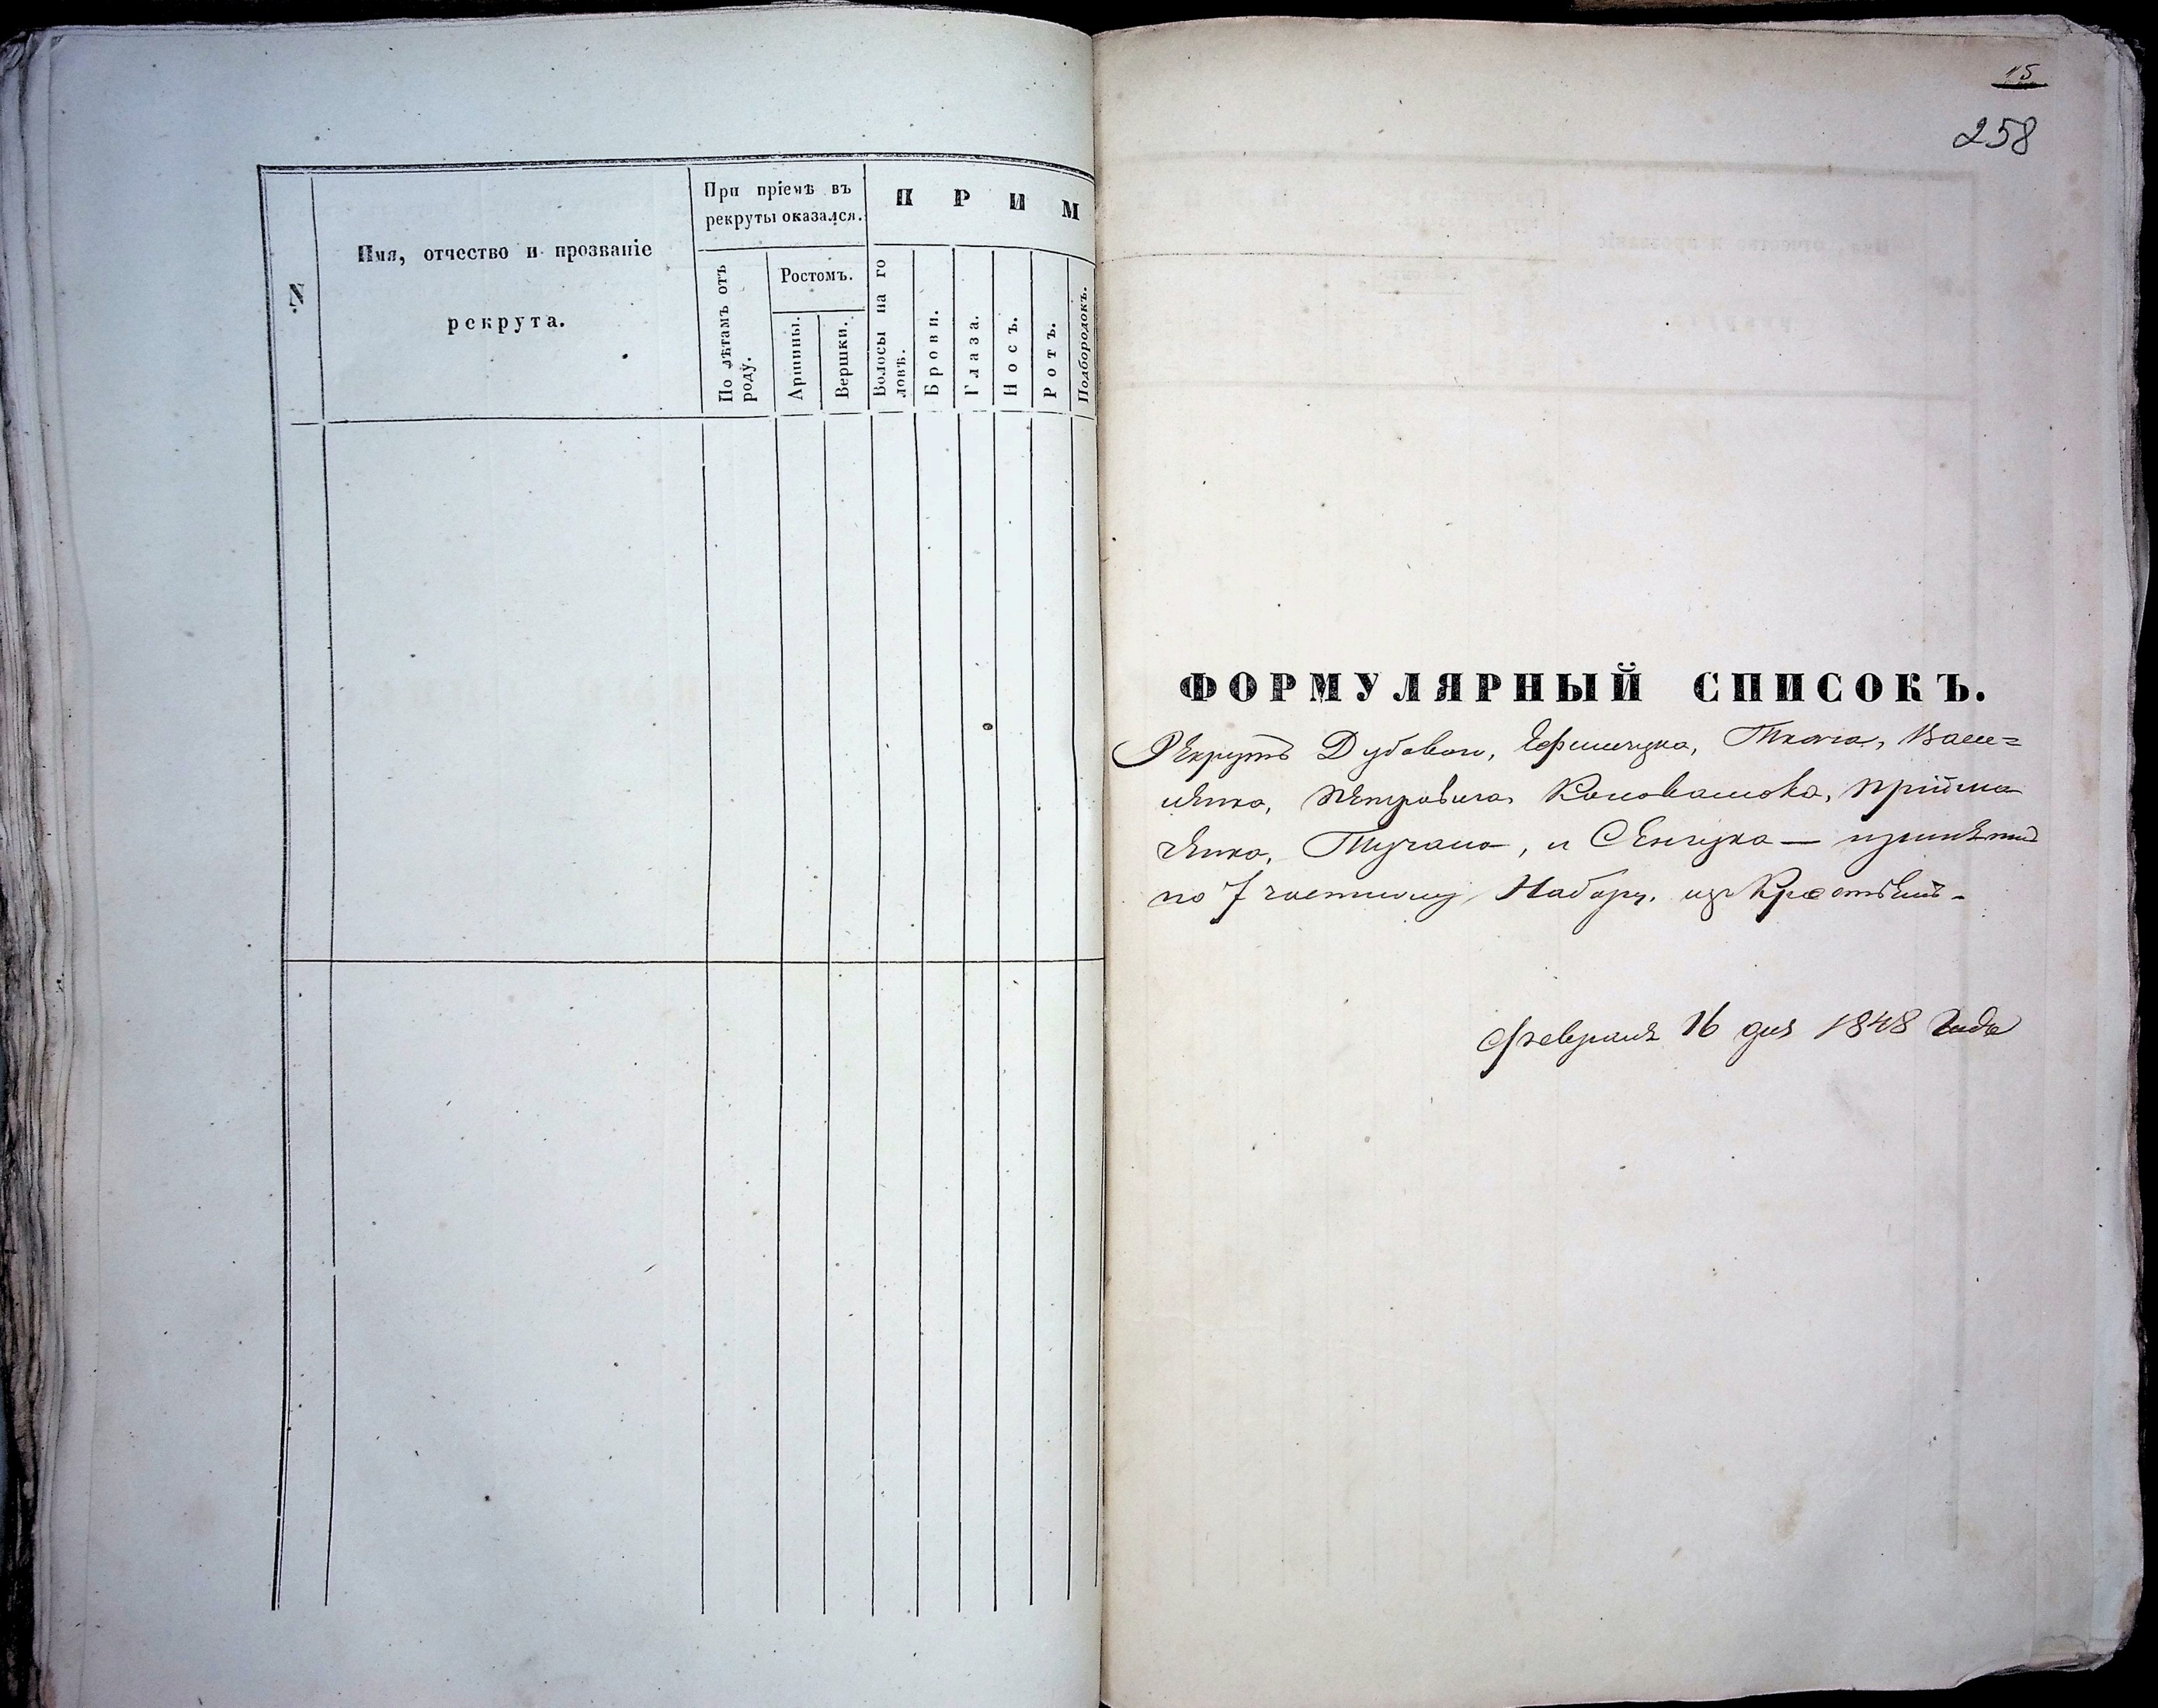 №
Имя, отчество и прозваніе
рекрута.
При пріемѣ въ
рекруты оказался.
По лѣтамъ отъ
роду.
Ростомъ.
Аршины.
Вершки.
П Р И М
Волосы на го
ловѣ.
Брови.
Глаза.
Носъ.
Ротъ.
Подбородокъ.
15
258
ФОРМУЛЯРНЫЙ СПИСОКЪ.
Рекрутъ Дубового, Ефимчука, Ткача, Васи=
ленка, Петровича, Коновалова, Прійма
ченка, и Сенчука — принятыхъ
по 7 частному Набору, изъ Крестьянъ.
Февраля 16 дня 1848 Года